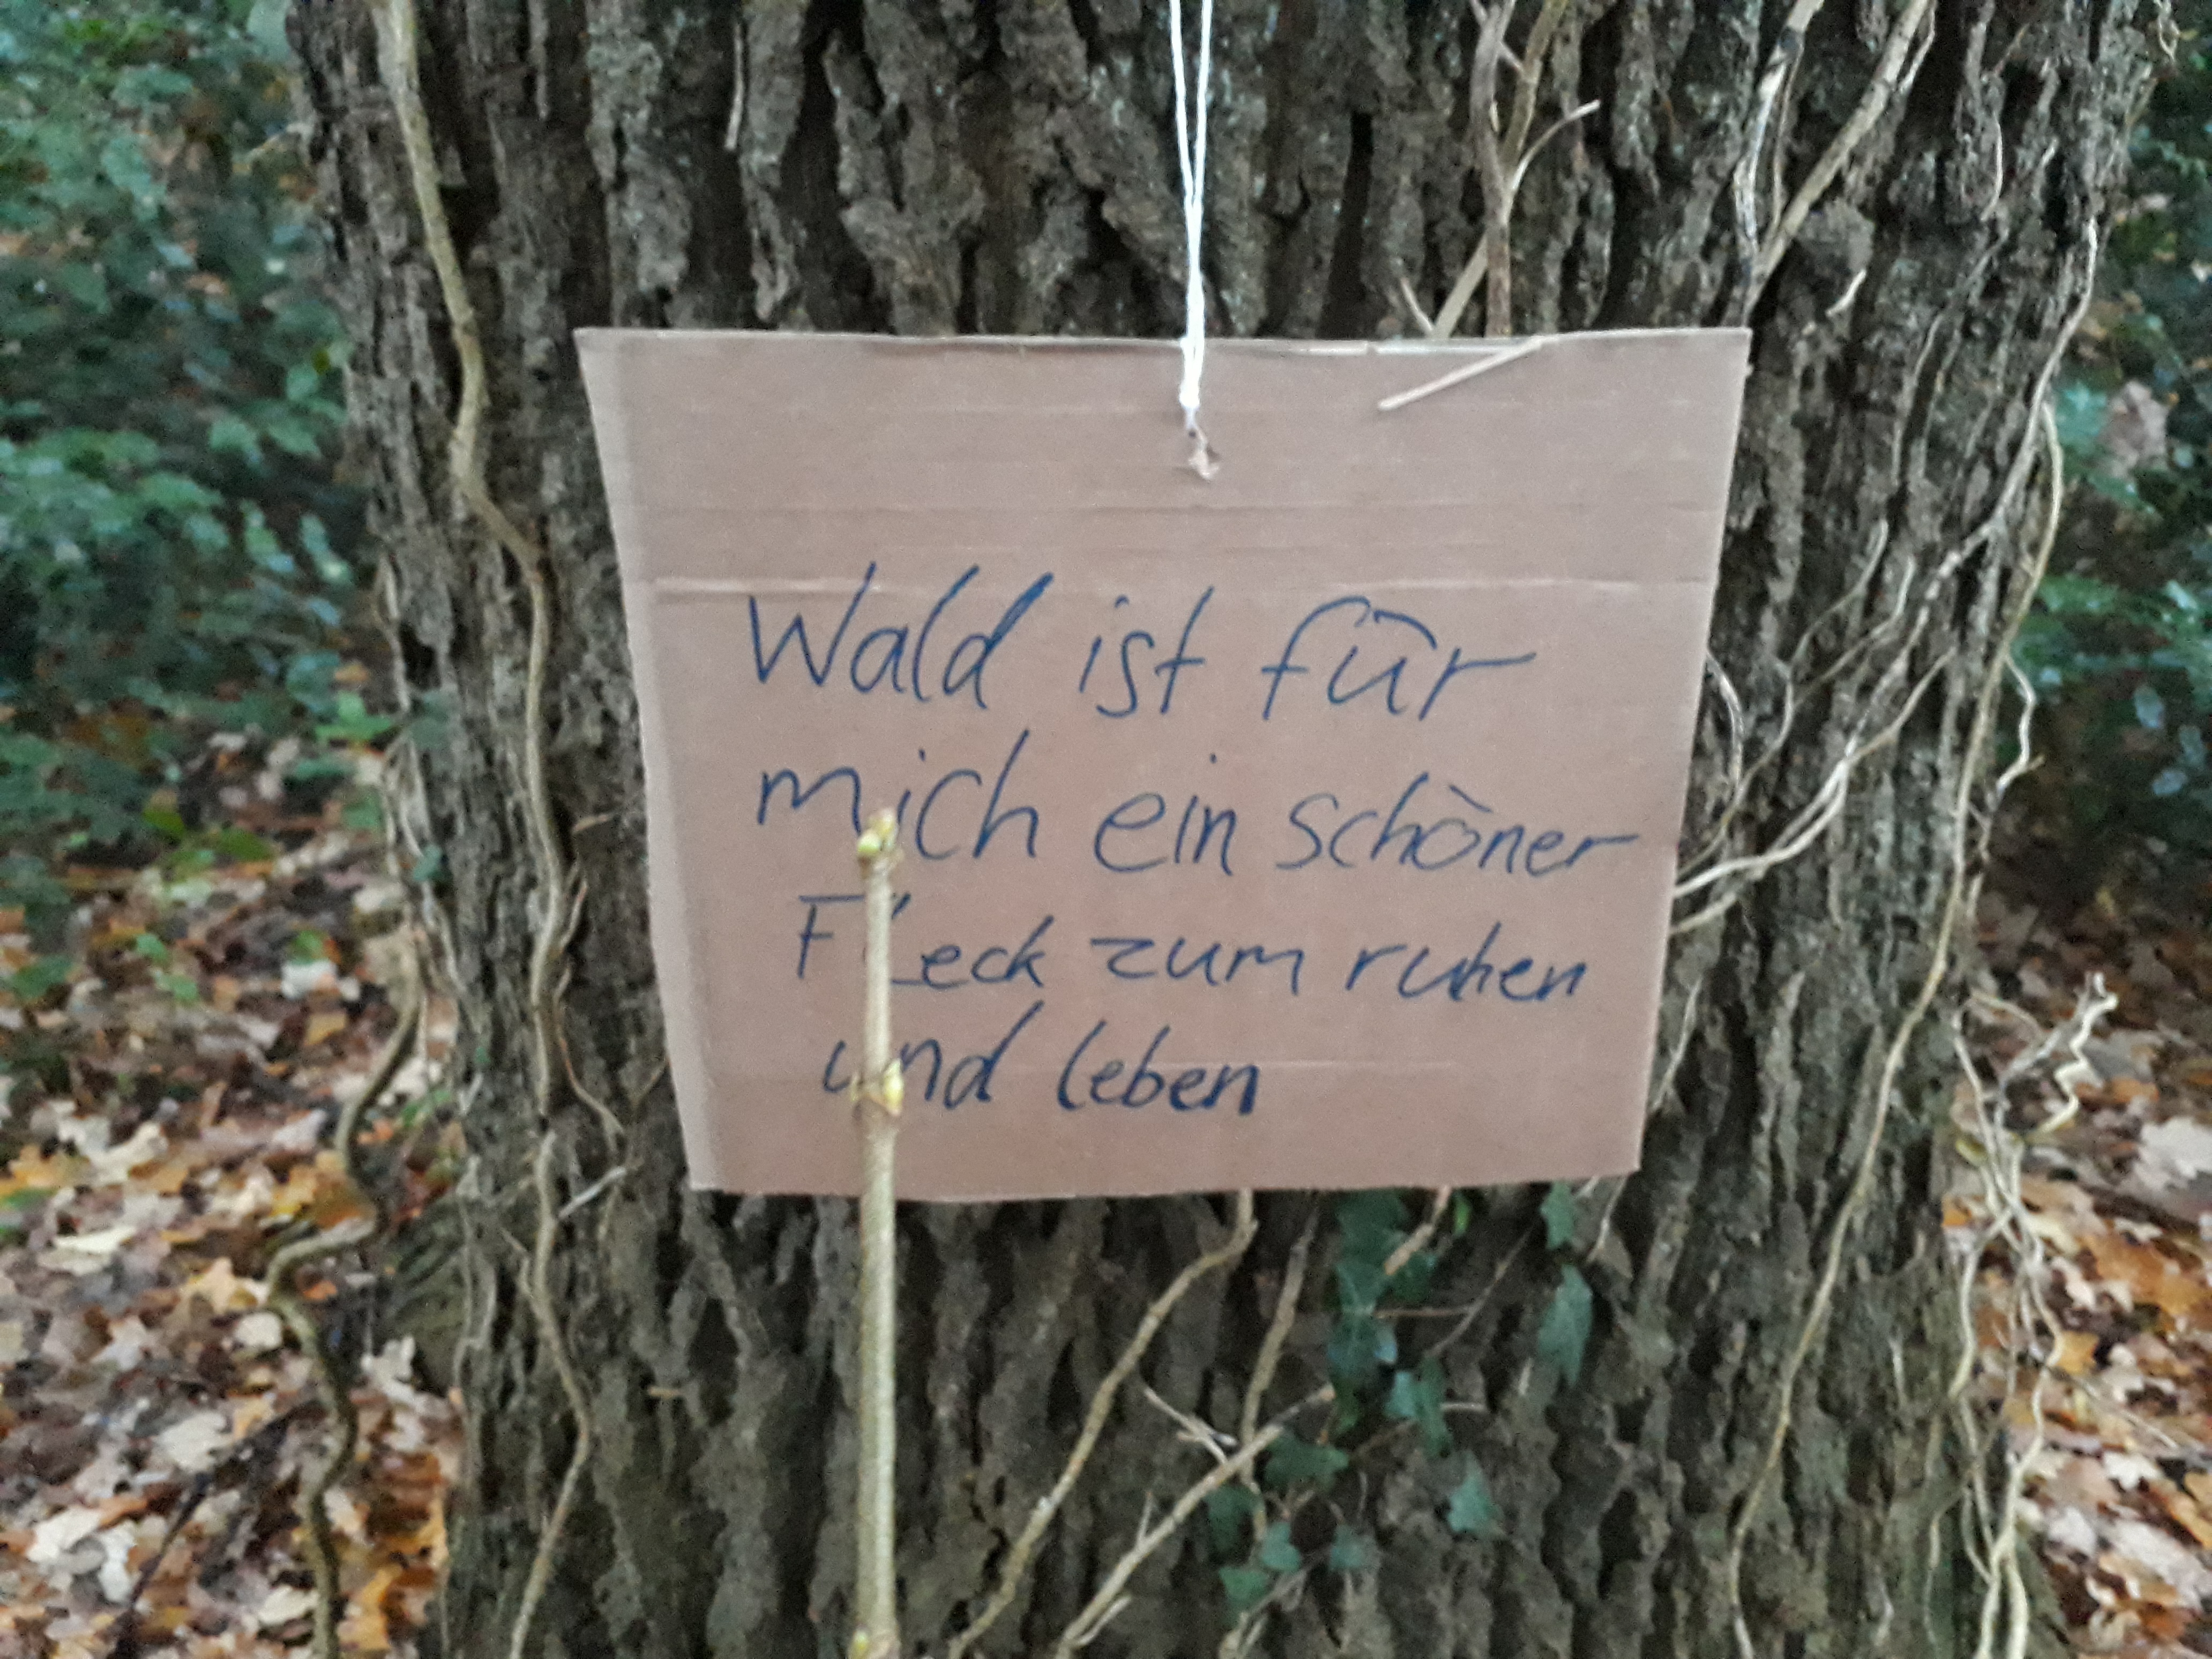 Wald ist für
mich ein schöner
Fleck zum ruhen
und leben